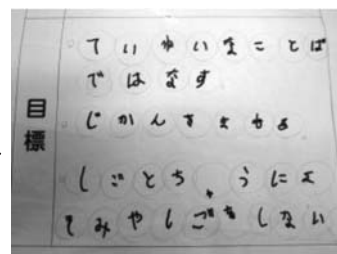 目標
ていねいなことば
ではなす
じかんをまもる
しごとちゅうによ
そみやしごをしない